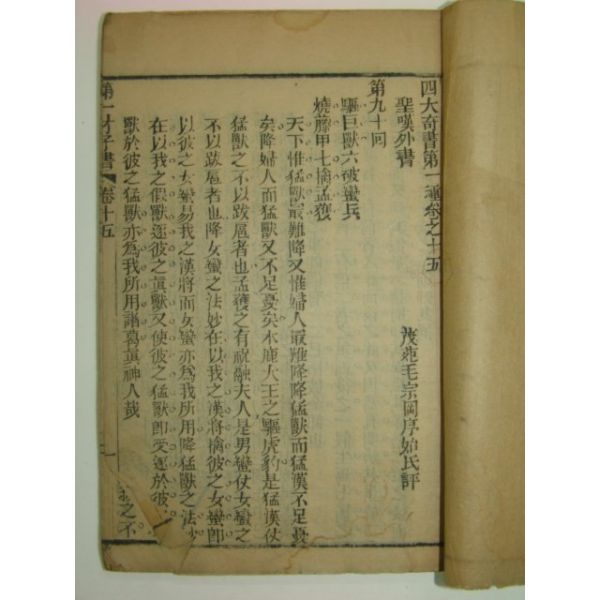 四大奇書第一種卷之十五
聖嘆外書
茂苑毛宗岡序始氏評
第九十回
驅巨獸六破蠻兵
燒藤甲七擒孟獲
天下惟猛獸最難降又惟婦人最難降降猛獸而猛漢不足憂
矣降婦人而猛獸又不足憂矣木鹿大王之驅虎豹是猛漢仗
猛獸之不以跋扈者也孟獲之有祝融夫人是男蠻仗女蠻之
不以跋扈者也降女蠻之法妙在以我之漢將擒彼之女蠻即
以彼之女蠻易我之漢將而女蠻亦為我所用降猛獸之法妙
在以我之假獸逐彼之真獸又使彼之猛獸即受逐於彼
獸於彼之猛獸亦為我所用諸葛真神人哉
之不
第一才子書
卷十五